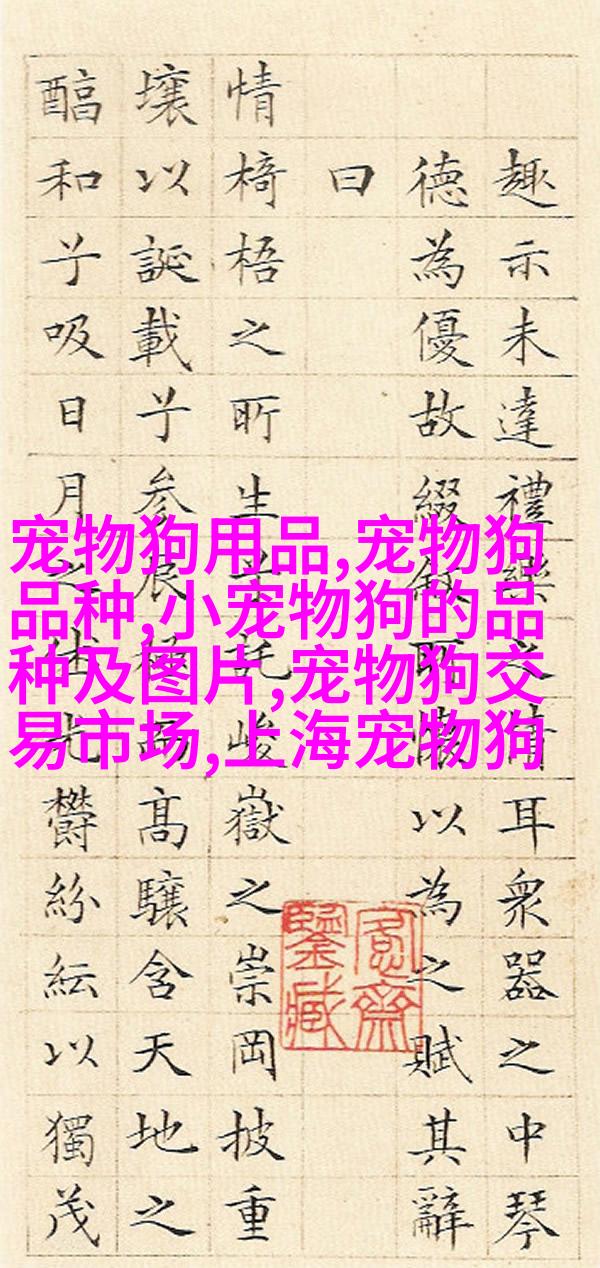 趣示未達禮樂之情耳衆器之中琴
德為優故綴敘所懷以為之賦其辭
曰
情椅梧之所生兮託峻嶽之崇岡披重
壤以誕載兮参辰極而高驤含天地之
醕和兮吸日月之休光鬱紛紜以獨茂
愙齋
鑒藏
宠物狗用品,宠物狗
品种,小宠物狗的品
种及图片,宠物狗交
易市场,上海宠物狗